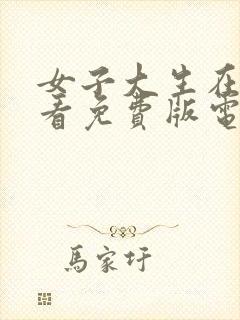 女子大生在
看免費版電
馬家圩